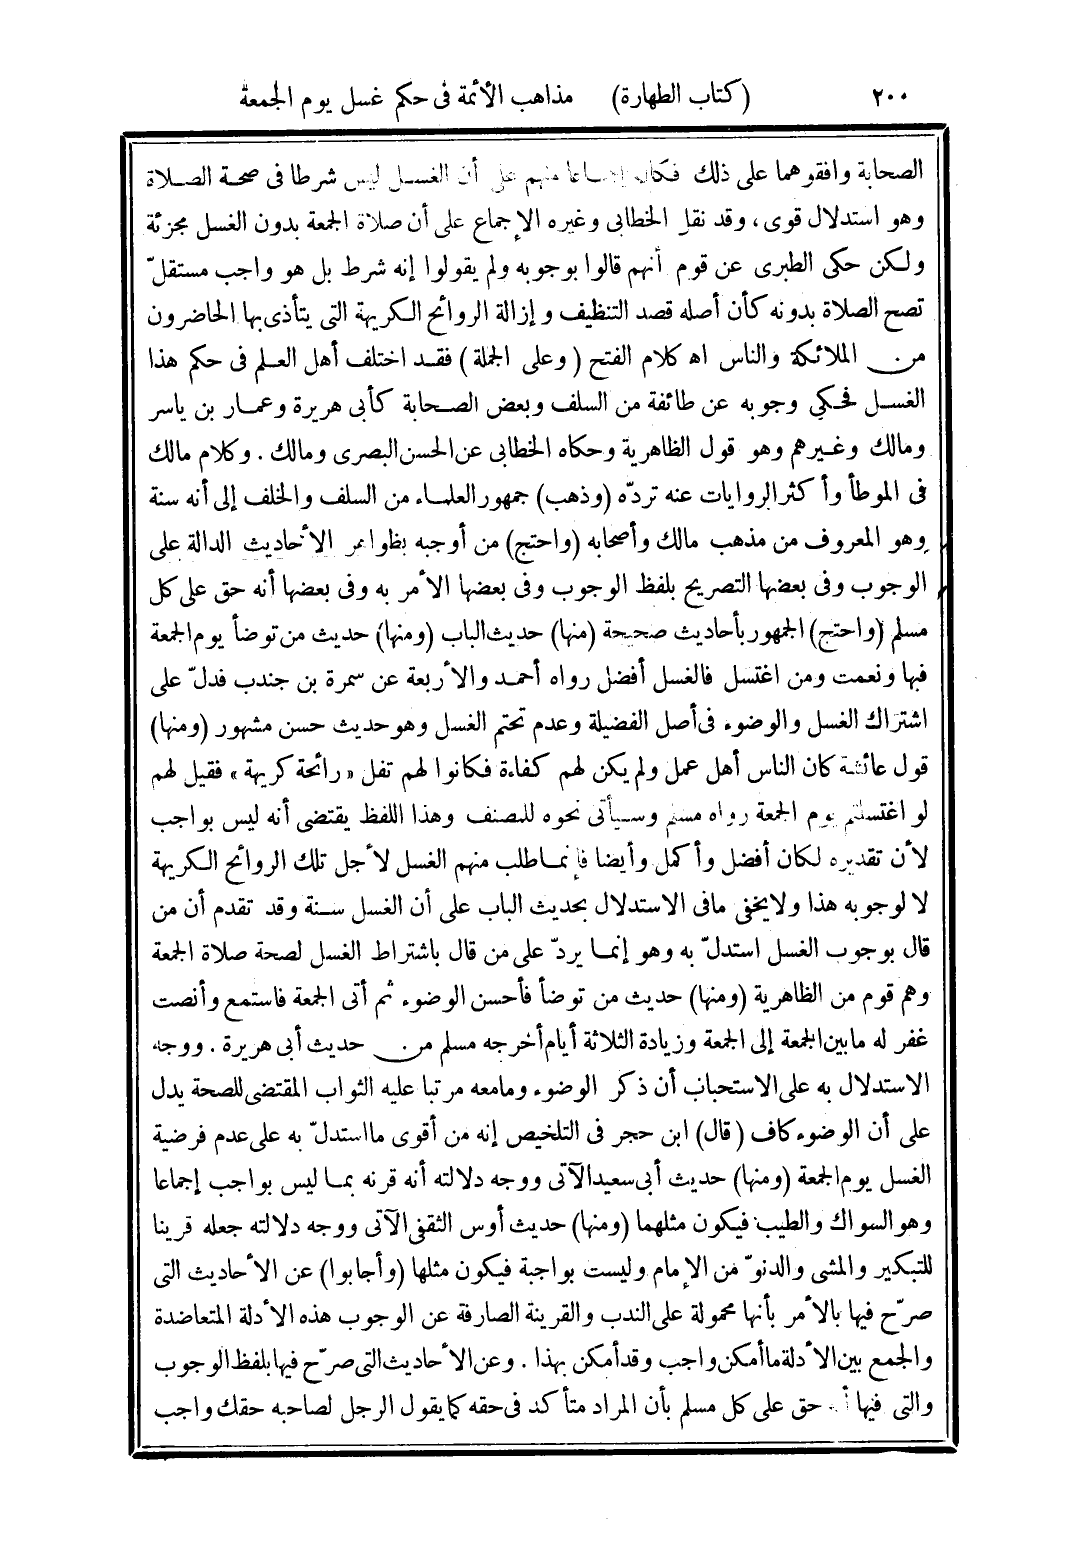 ٢٠٠ (كتاب الطهارة) مذاهب الأئمة فى حكم غسل يوم الجمعة
الصحابة وافقوهما على ذلك فكان إجماعا منهم على أن الغسل ليس شرطا فى صحة الصلاة
وهو استدلال قوى، وقد نقل الخطابى وغيره الإجماع على أن صلاة الجمعة بدون الغسل مجزئة
ولكن حكى الطبرى عن قوم أنهم قالوا بوجوبه ولم يقولوا إنه شرط بل هو واجب مستقلّ
تصح الصلاة بدونه كأن أصله قصد التنظيف وإزالة الروائح الكريهة التى يتأذى بها الحاضرون
من الملائكة والناس اه كلام الفتح (وعلى الجملة) فقد اختلف أهل العلم فى حكم هذا
الغسل فحكي وجوبه عن طائفة من السلف وبعض الصحابة كأبى هريرة وعمار بن ياسر
ومالك وغيرهم وهو قول الظاهرية وحكاه الخطابى عن الحسن البصرى ومالك. وكلام مالك
فى الموطأ وأكثر الروايات عنه تردّه (وذهب) جمهور العلماء من السلف والخلف إلى أنه سنة
وهو المعروف من مذهب مالك وأصحابه (واحتج) من أوجبه بظواهر الأحاديث الدالة على
الوجوب وفى بعضها التصريح بلفظ الوجوب وفى بعضها الأمر به وفى بعضها أنه حق على كل
مسلم (واحتج) الجمهور بأحاديث صحيحة (منها) حديث الباب (ومنها) حديث من توضأ يوم الجمعة
فبها ونعمت ومن اغتسل فالغسل أفضل رواه أحمد والأربعة عن سمرة بن جندب فدلّ على
اشتراك الغسل والوضوء فى أصل الفضيلة وعدم تحتم الغسل وهو حديث حسن مشهور (ومنها)
قول عائشة كان الناس أهل عمل ولم يكن لهم كفاءة فكانوا لهم تفل «رائحة كريهة» فقيل لهم
لو اغتسلتم يوم الجمعة رواه مسلم وسيأتى نحوه للمصنف وهذا اللفظ يقتضى أنه ليس بواجب
لأن تقديره لكان أفضل وأكمل وأيضا فإنما طلب منهم الغسل لأجل تلك الروائح الكريهة
لا لوجوبه هذا ولايخفى مافى الاستدلال بحديث الباب على أن الغسل سنة وقد تقدم أن من
قال بوجوب الغسل استدلّ به وهو إنما يردّ على من قال باشتراط الغسل لصحة صلاة الجمعة
وهم قوم من الظاهرية (ومنها) حديث من توضأ فأحسن الوضوء ثم أتى الجمعة فاستمع وأنصت
غفر له مابين الجمعة إلى الجمعة وزيادة الثلاثة أيام أخرجه مسلم من حديث أبى هريرة. ووجه
الاستدلال به على الاستحباب أن ذكر الوضوء ومامعه مرتبا عليه الثواب المقتضى للصحة يدل
على أن الوضوء كاف (قال) ابن حجر فى التلخيص إنه من أقوى مااستدلّ به على عدم فرضية
الغسل يوم الجمعة (ومنها) حديث أبى سعيد الآتى ووجه دلالته أنه قرنه بما ليس بواجب إجماعا
وهو السواك والطيب فيكون مثلهما (ومنها) حديث أوس الثقفى الآتى ووجه دلالته جعله قرينا
للتبكير والمشى والدنوّ من الإمام وليست بواجبة فيكون مثلها (وأجابوا) عن الأحاديث التى
صرّح فيها بالأمر بأنها محمولة على الندب والقرينة الصارفة عن الوجوب هذه الأدلة المتعاضدة
والجمع بين الأدلة ماأمكن واجب وقد أمكن بهذا. وعن الأحاديث التى صرّح فيها بلفظ الوجوب
والتى فيها حق على كل مسلم بأن المراد متأكد فى حقه كما يقول الرجل لصاحبه حقك واجب